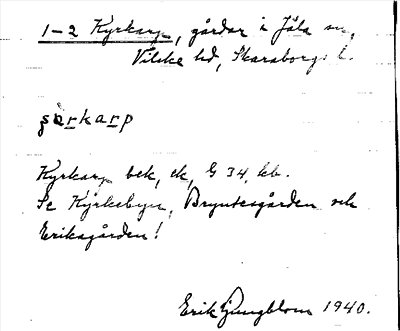 1-2 Kyrkarp, gårdar i Jäla sn,
Vilske hd, Skaraborgs l.
karp
Kyrkarp bek, ek, G 34, kb.
Se Kyrkebyn, Bryntesgården och
Eriksgården!
Erik Ljungblom 1940.